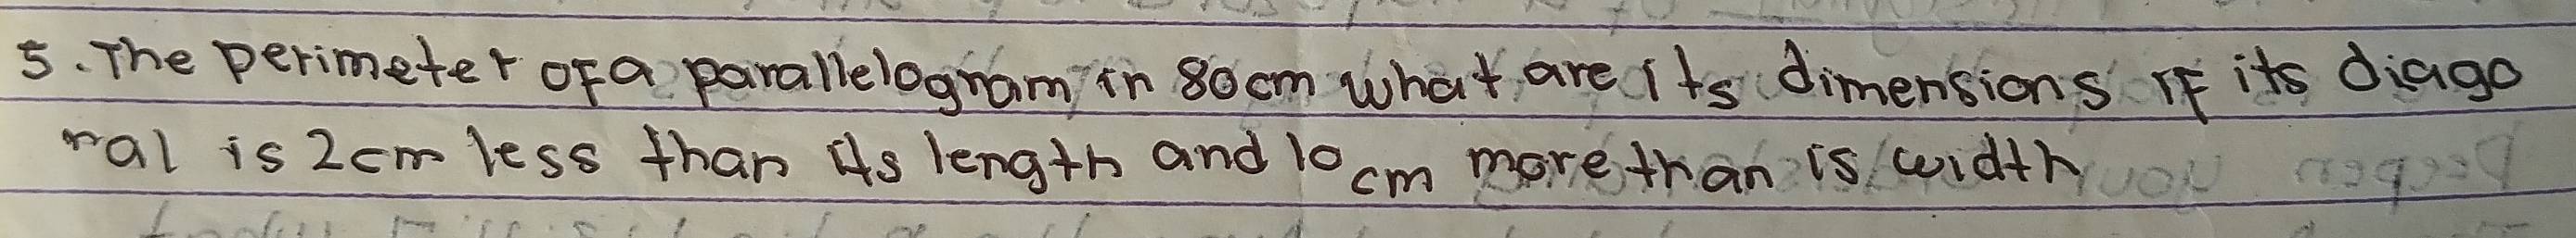 5. The perimeter of a parallelogram in 80cm what are its dimensions if its diago
nal is 2cm less than its length and 10cm more than is width